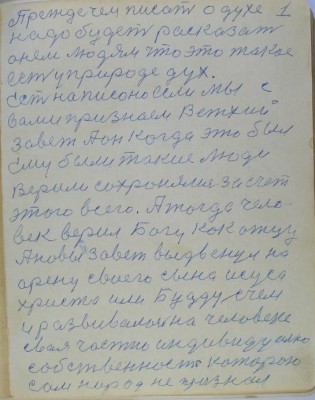 Прежде чем писат о духе 1
надо будет расказат
о нем людям что это такое
ест у природе дух.
Ест написоно если мы с
вами признаем Ветхий
завет А он когда это был
ему были такие люди
верили сохроняли за счет
этого всего. А тогда чело-
век верил Богу как отцу
А новый завет выдвенул на
арену своего сына исуса
христа или Будду с чем
и развивалой на человеке
свая частно индивидуално
собственност которою
сам народ не признал